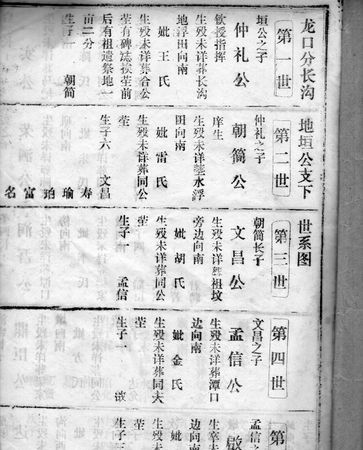 龙口分长沟地垣公支下世系图
第一世
垣公之子
仲礼公
钦授指挥
生殁未详葬长沟
地浮田向南
妣王氏
生殁未详葬合公
茔有碑志挨茔前
后有祖遗祭地一
亩二分
生子一 朝简
第二世
仲礼之子
朝简公
庠生
生殁未详葬水浮
田向南
妣雷氏
生殁未详葬同公
茔
生子六 文昌
寿瑜珀富名
第三世
朝简长子
文昌公
生殁未详葬祖坟
旁边向南
妣胡氏
生殁未详葬同公
茔
生子一 孟信
第四世
文昌之子
孟信公
生殁未详葬潭口
边向南
妣金氏
生殁未详葬同夫
茔
生子一
第
孟信之
啟
边向南
妣
生殁未
茔
生子